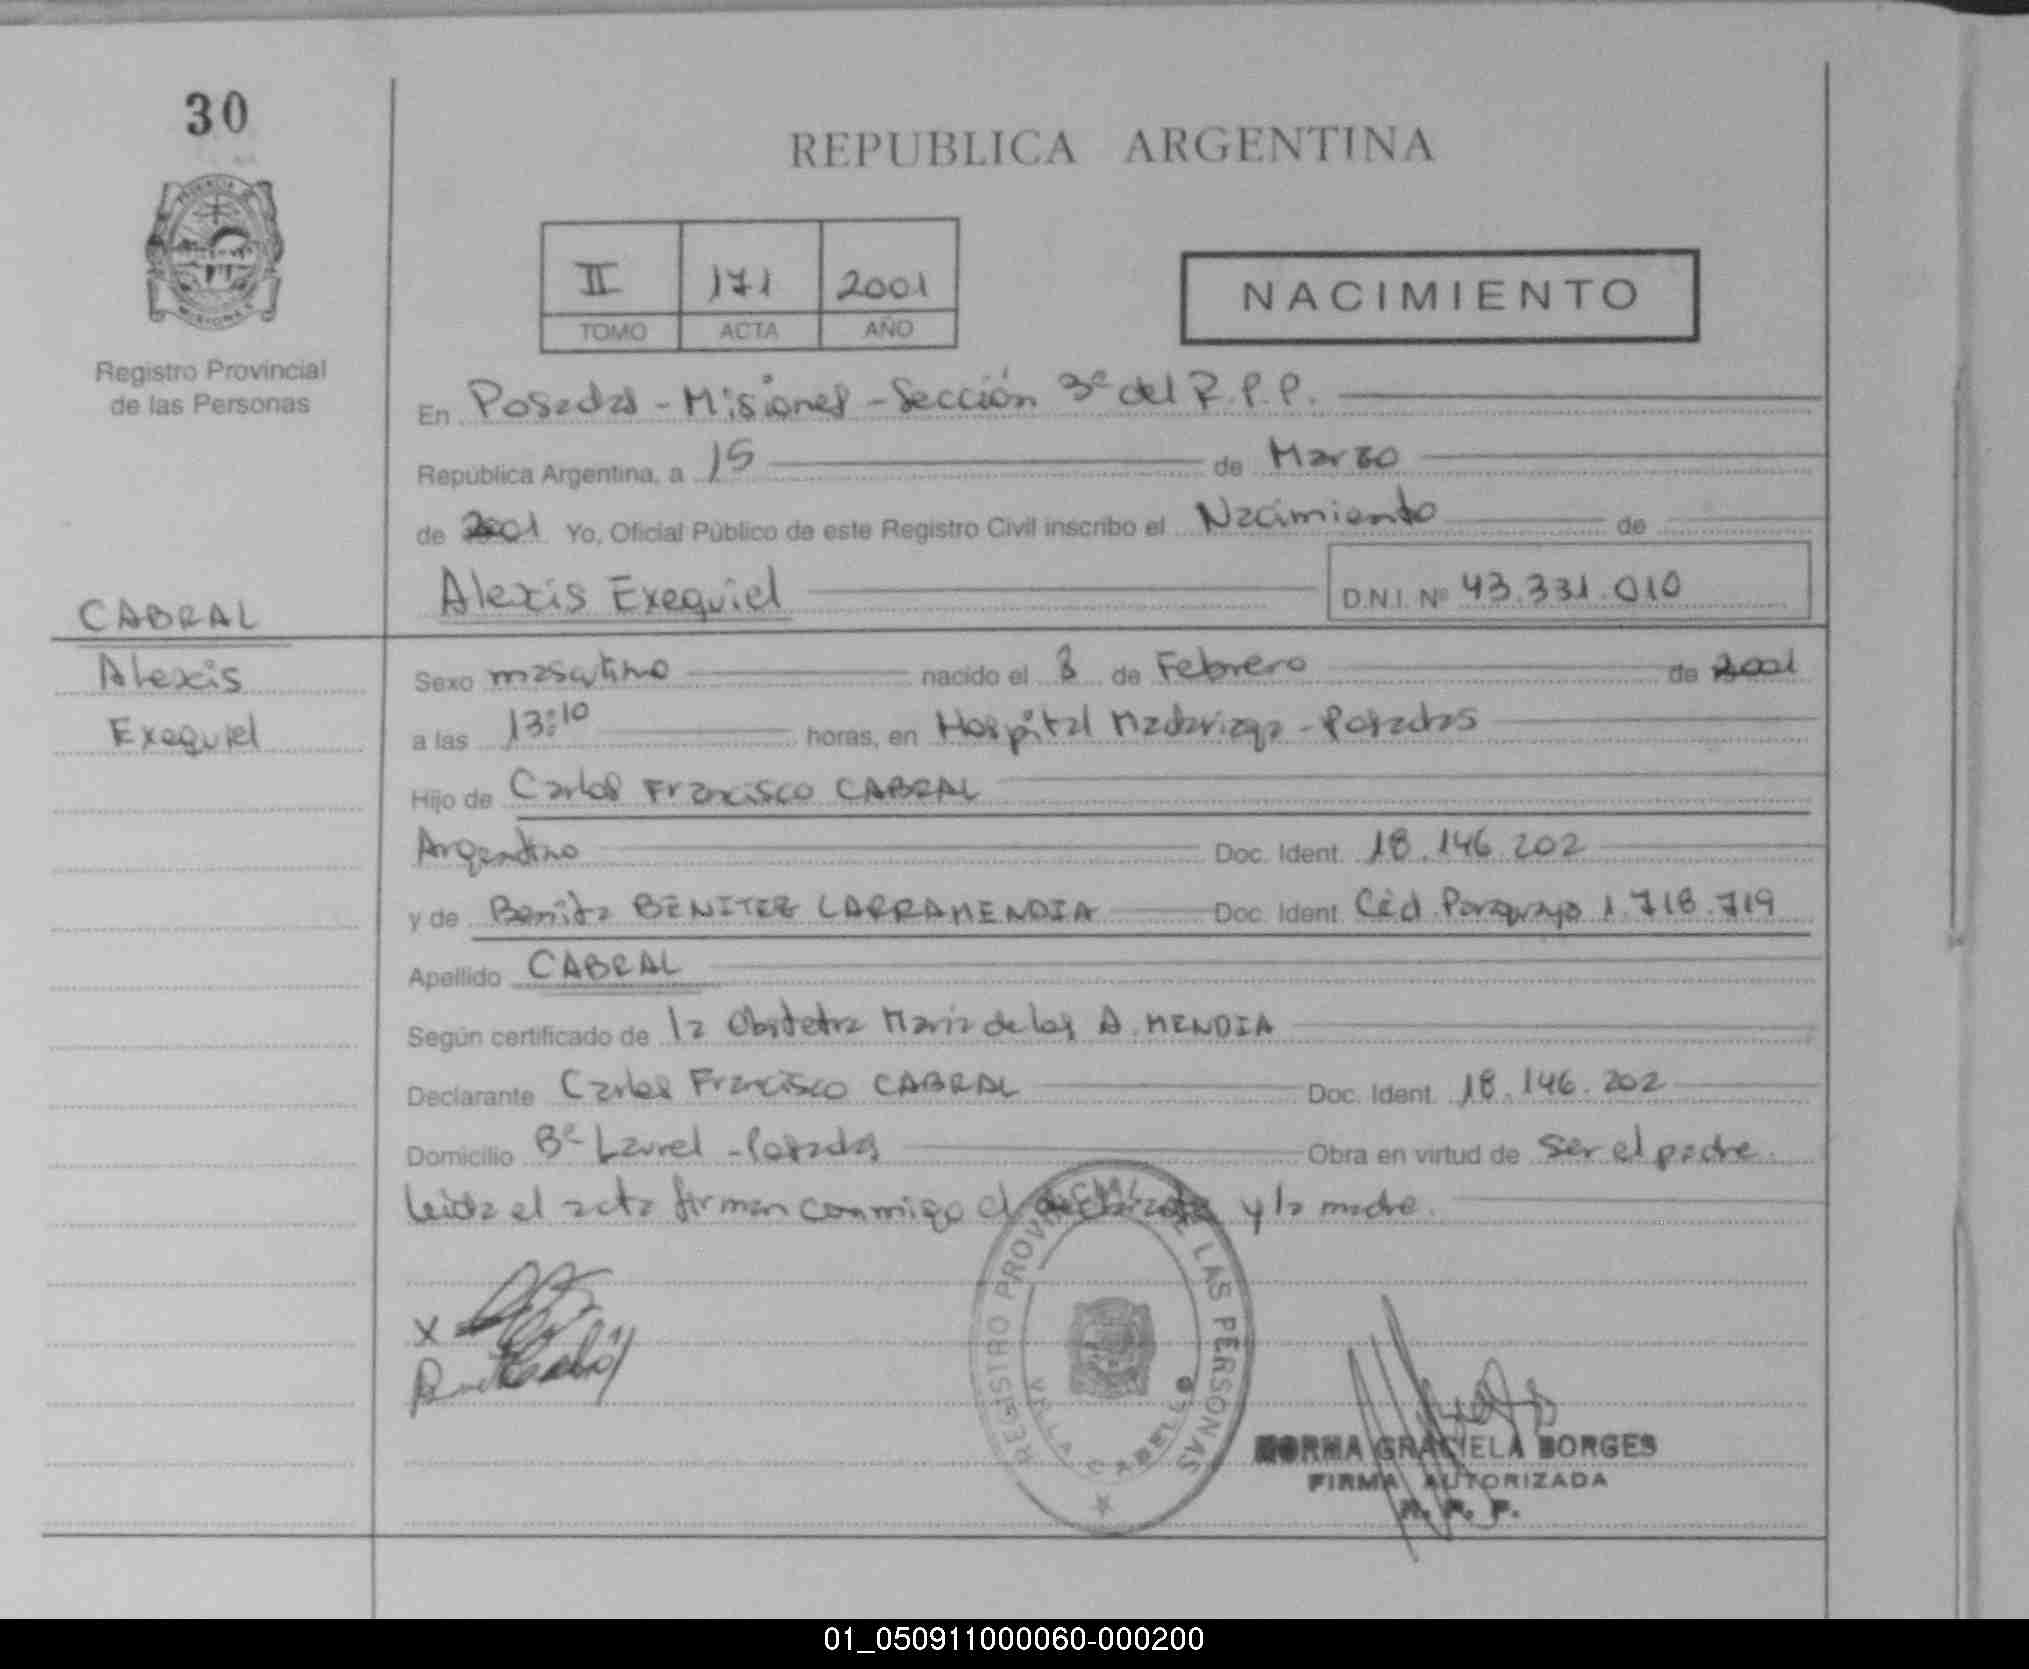 30
REPUBLICA ARGENTINA
II 171 2001
TOMO ACTA AÑO
NACIMIENTO
Registro Provincial
de las Personas
En Posadas - Misiones - Sección 3ª del R.P.P.
República Argentina, a 15 de Marzo
de 2001 Yo, Oficial Público de este Registro Civil inscribo el Nacimiento de
Alexis Exequiel D.N.I. Nº 43.331.010
CABRAL
Alexis
Exequiel
Sexo masculino nacido el 8 de Febrero de 2001
a las 13:10 horas, en Hospital Madariaga - Posadas
Hijo de Carlos Francisco CABRAL
Argentino Doc. Ident. 18.146.202
y de Benita BENITEZ LARRAMENDIA Doc. Ident. Céd. Paraguaya 1.718.719
Apellido CABRAL
Según certificado de la Obstetra Maria de los A. MENDIA
Declarante Carlos Francisco CABRAL Doc. Ident. 18.146.202
Domicilio Bº Laurel - Posadas Obra en virtud de ser el padre.
Leida el acta firman conmigo el declarante y la madre.
X
REGISTRO PROVINCIAL DE LAS PERSONAS
VILLA CABELLO
NORMA GRACIELA BORGES
FIRMA AUTORIZADA
R. P. P.
01_050911000060-000200